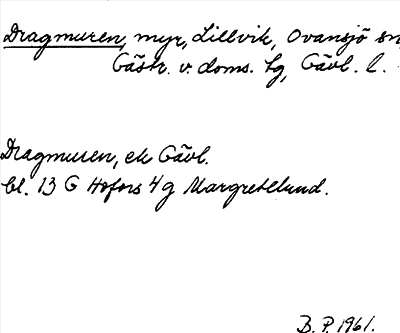 Dragmuren, myr, Lillvik, Ovansjö sn,
Gästr. v. doms. tg, Gävl. l.
Dragmuren, ek Gävl.
bl. 13 G Hofors 4 g Margretelund.
B. P. 1961.